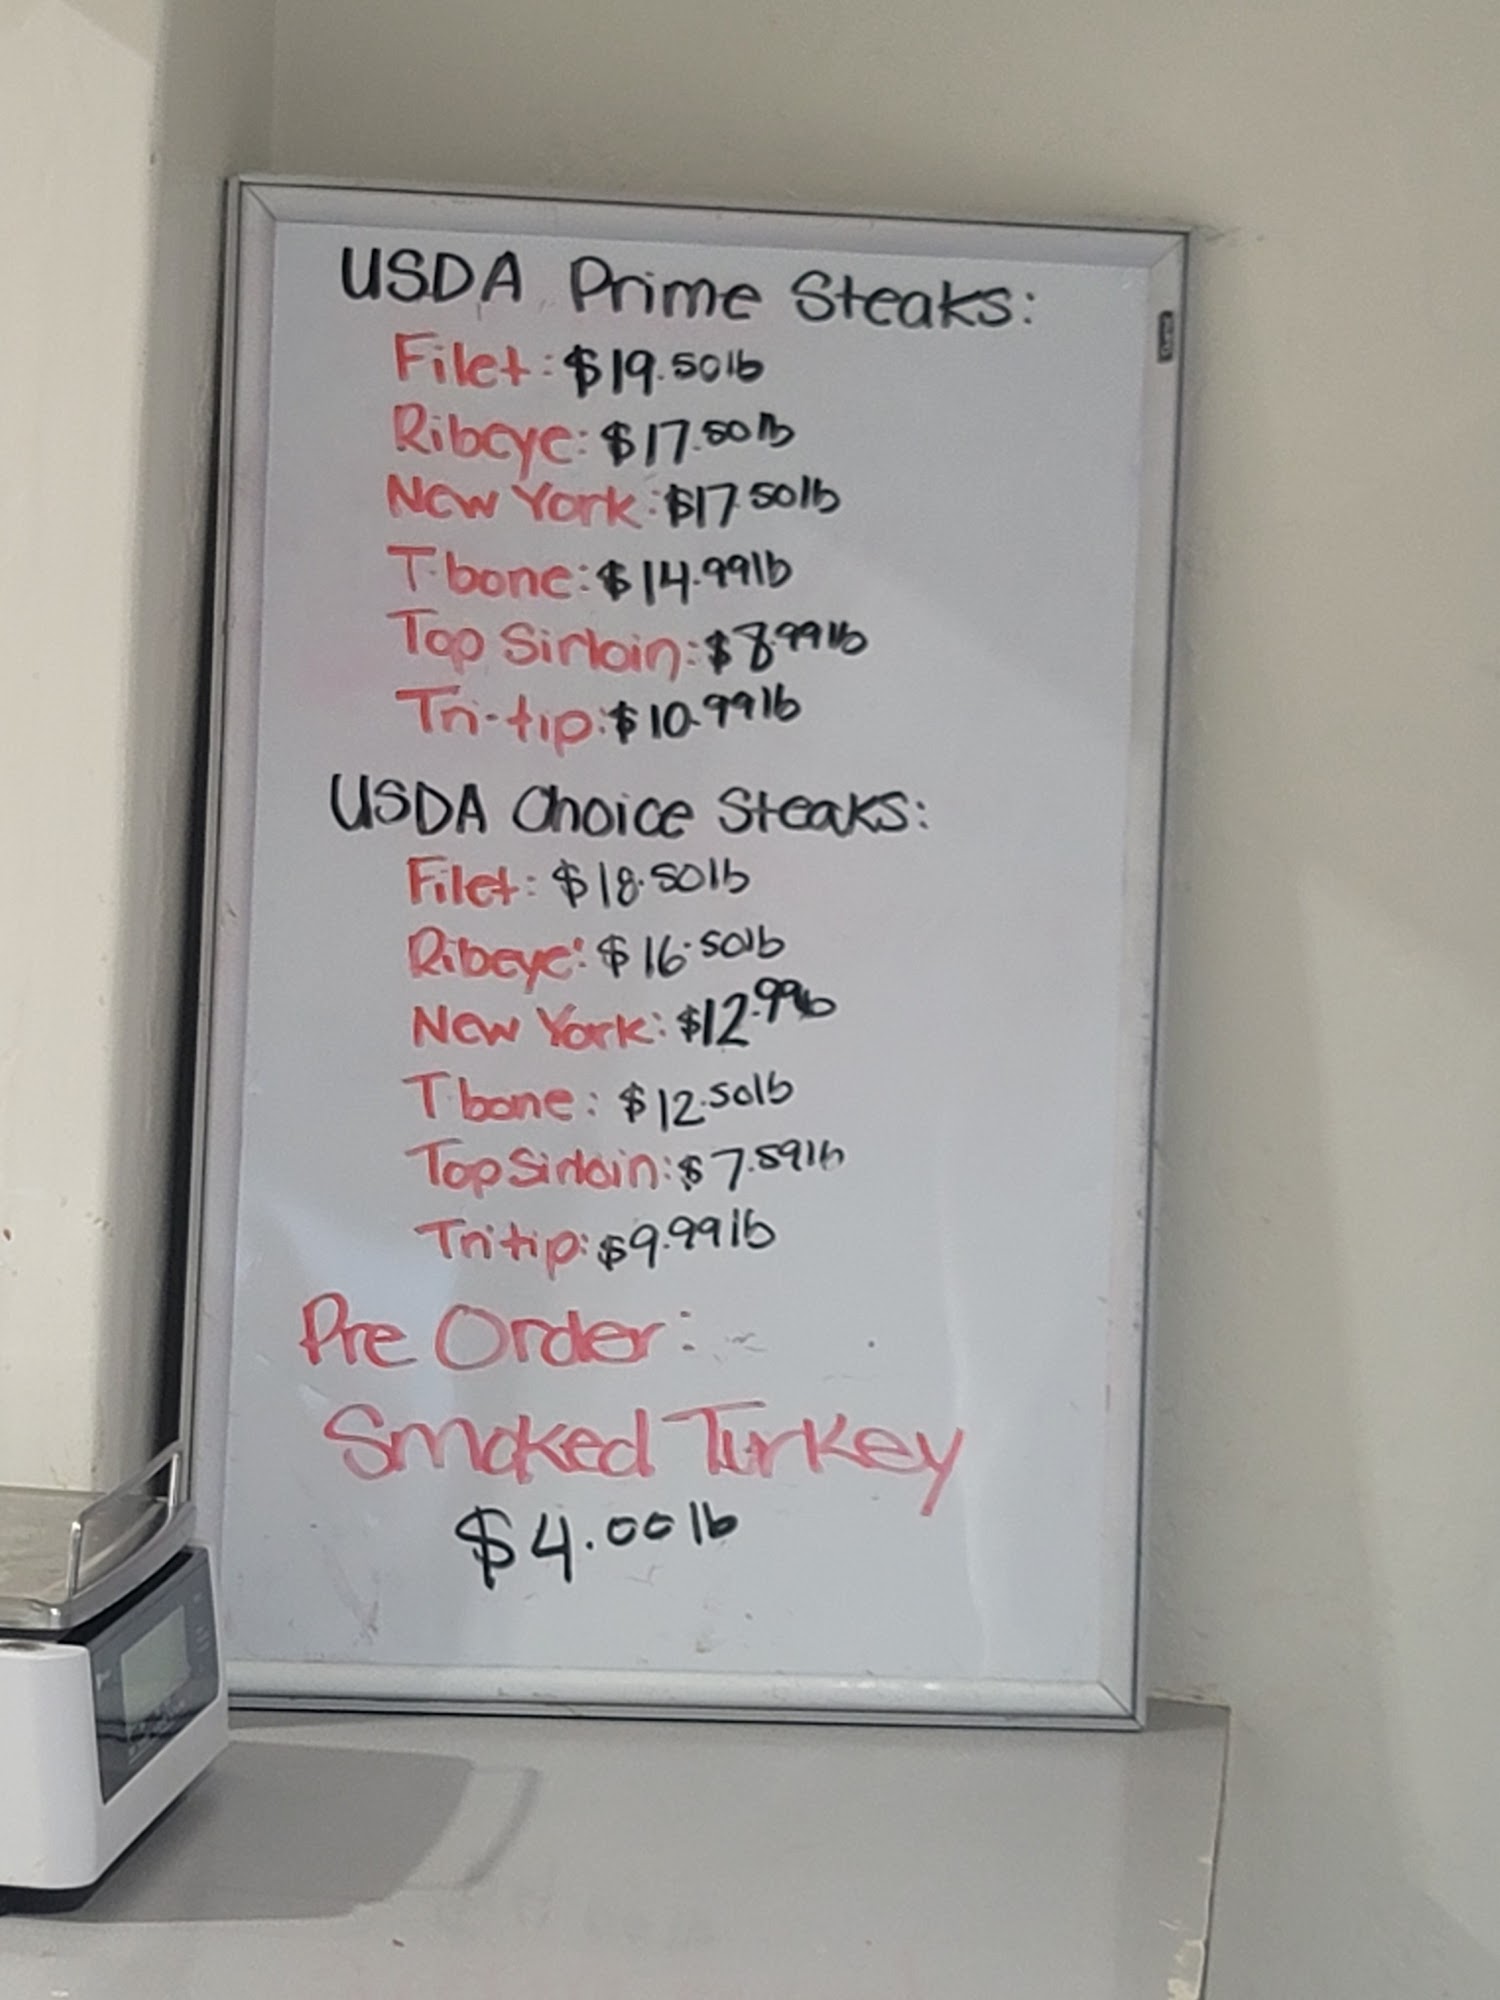 USDA Prime Steaks:
Filet: $19.50lb
Ribeye: $17.50lb
New York: $17.50lb
T-bone: $14.99lb
Top Sirloin: $8.99lb
Tri-tip: $10.99lb
USDA Choice Steaks:
Filet: $18.50lb
Ribeye: $16.50lb
New York: $12.99lb
T bone: $12.50lb
Top Sirloin: $7.59lb
Tri tip: $9.99lb
Pre Order:
Smoked Turkey
$4.00lb